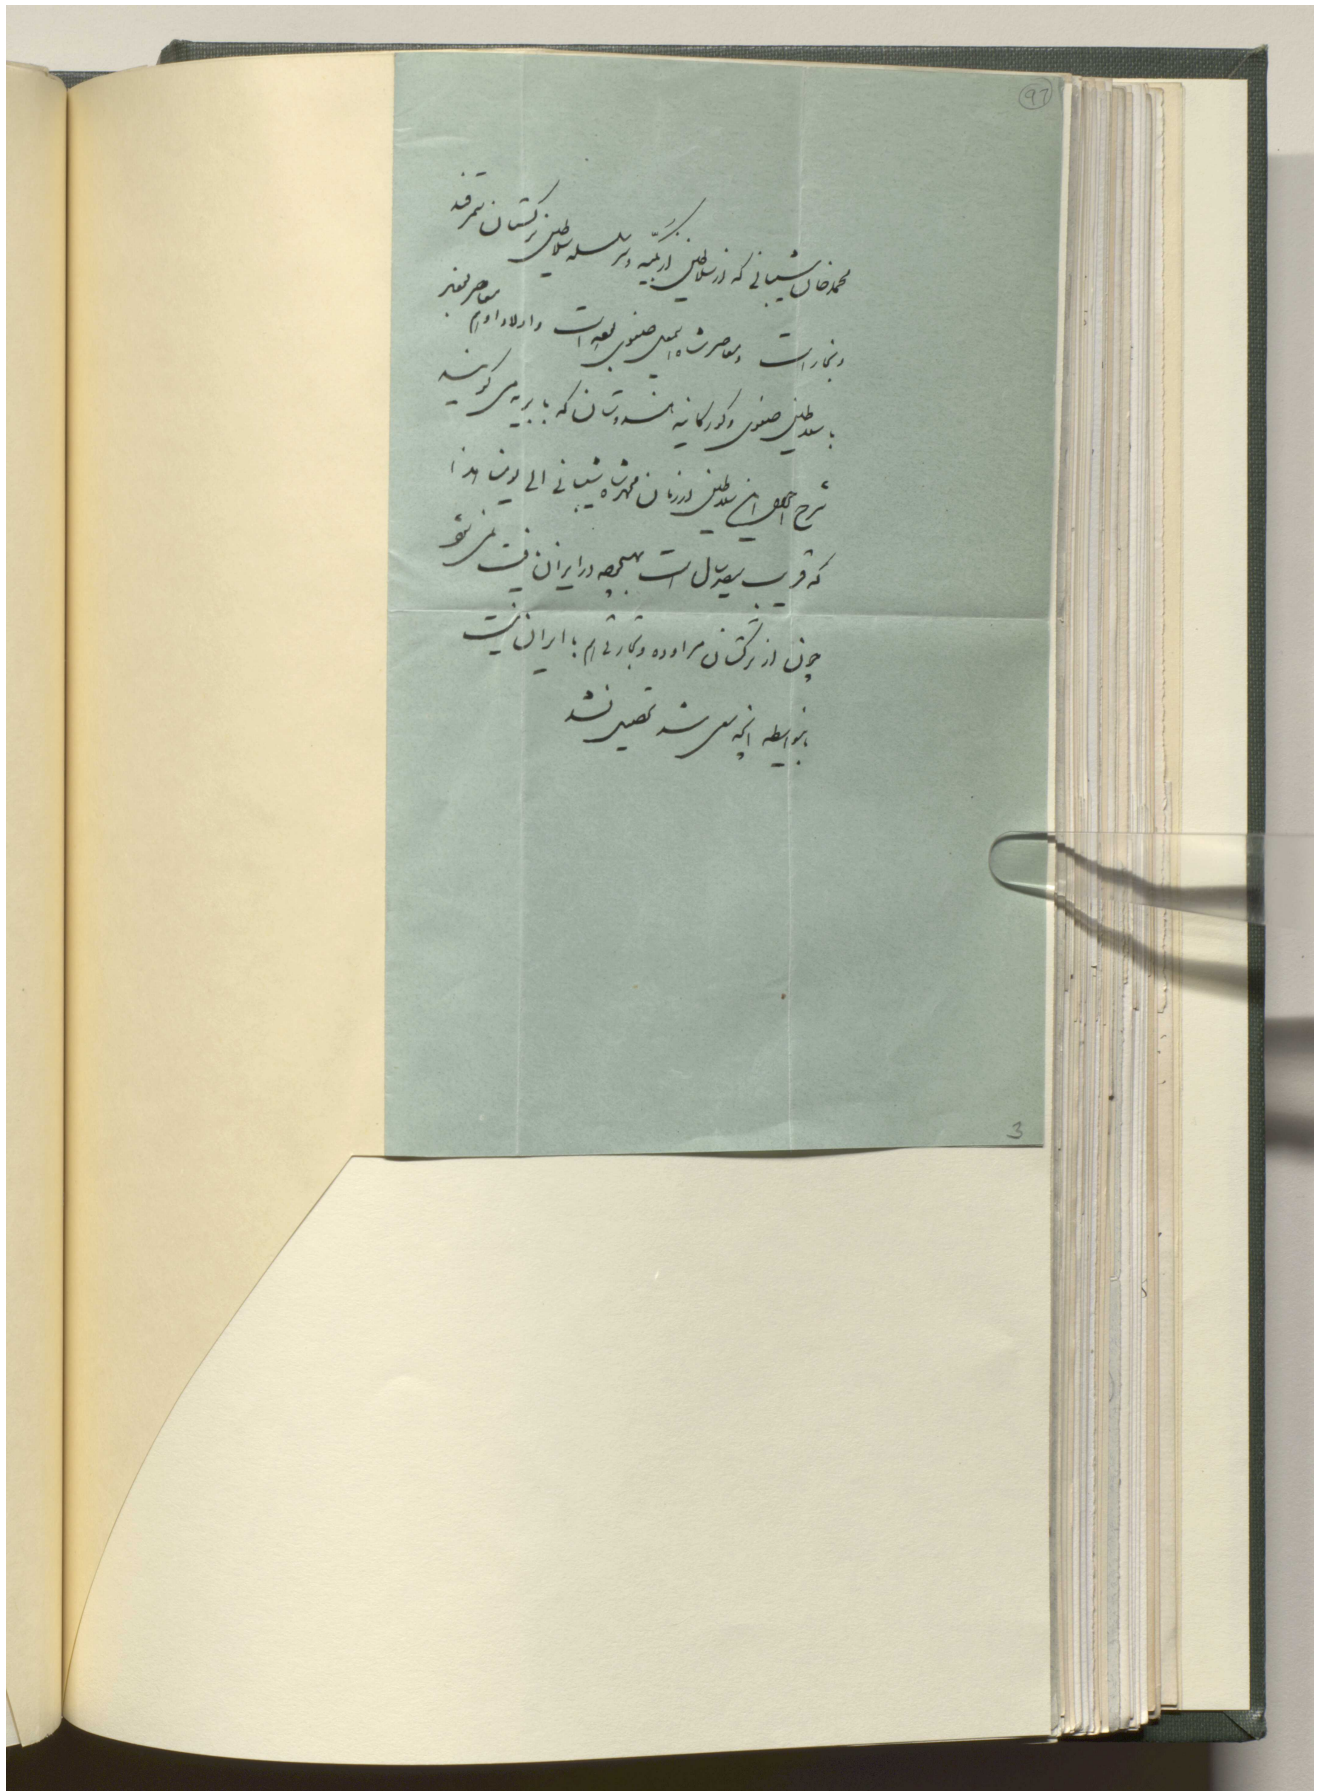 97
محمدخان شیبانی که از سلاطین ازبکیه و سر سلسله سلاطین ترکستان سمرقند
و بخارا است و معاصر شاه اسمعیل صفوی بوده است و اولاد او هم معاصر
با سلاطین صفوی و کورکانیه هندوستان که بابریه می کویند
شرح احوال این سلاطین از زمان محمد شاه شیبانی الی یومنا هذا
که قریب سیصد سال است بهیچوجه در ایران نیست نمی شود
چون از ترکستان مراوده و تجارتی هم با ایران نیست
باینواسطه آنچه سعی شد تحصیل نشد
3